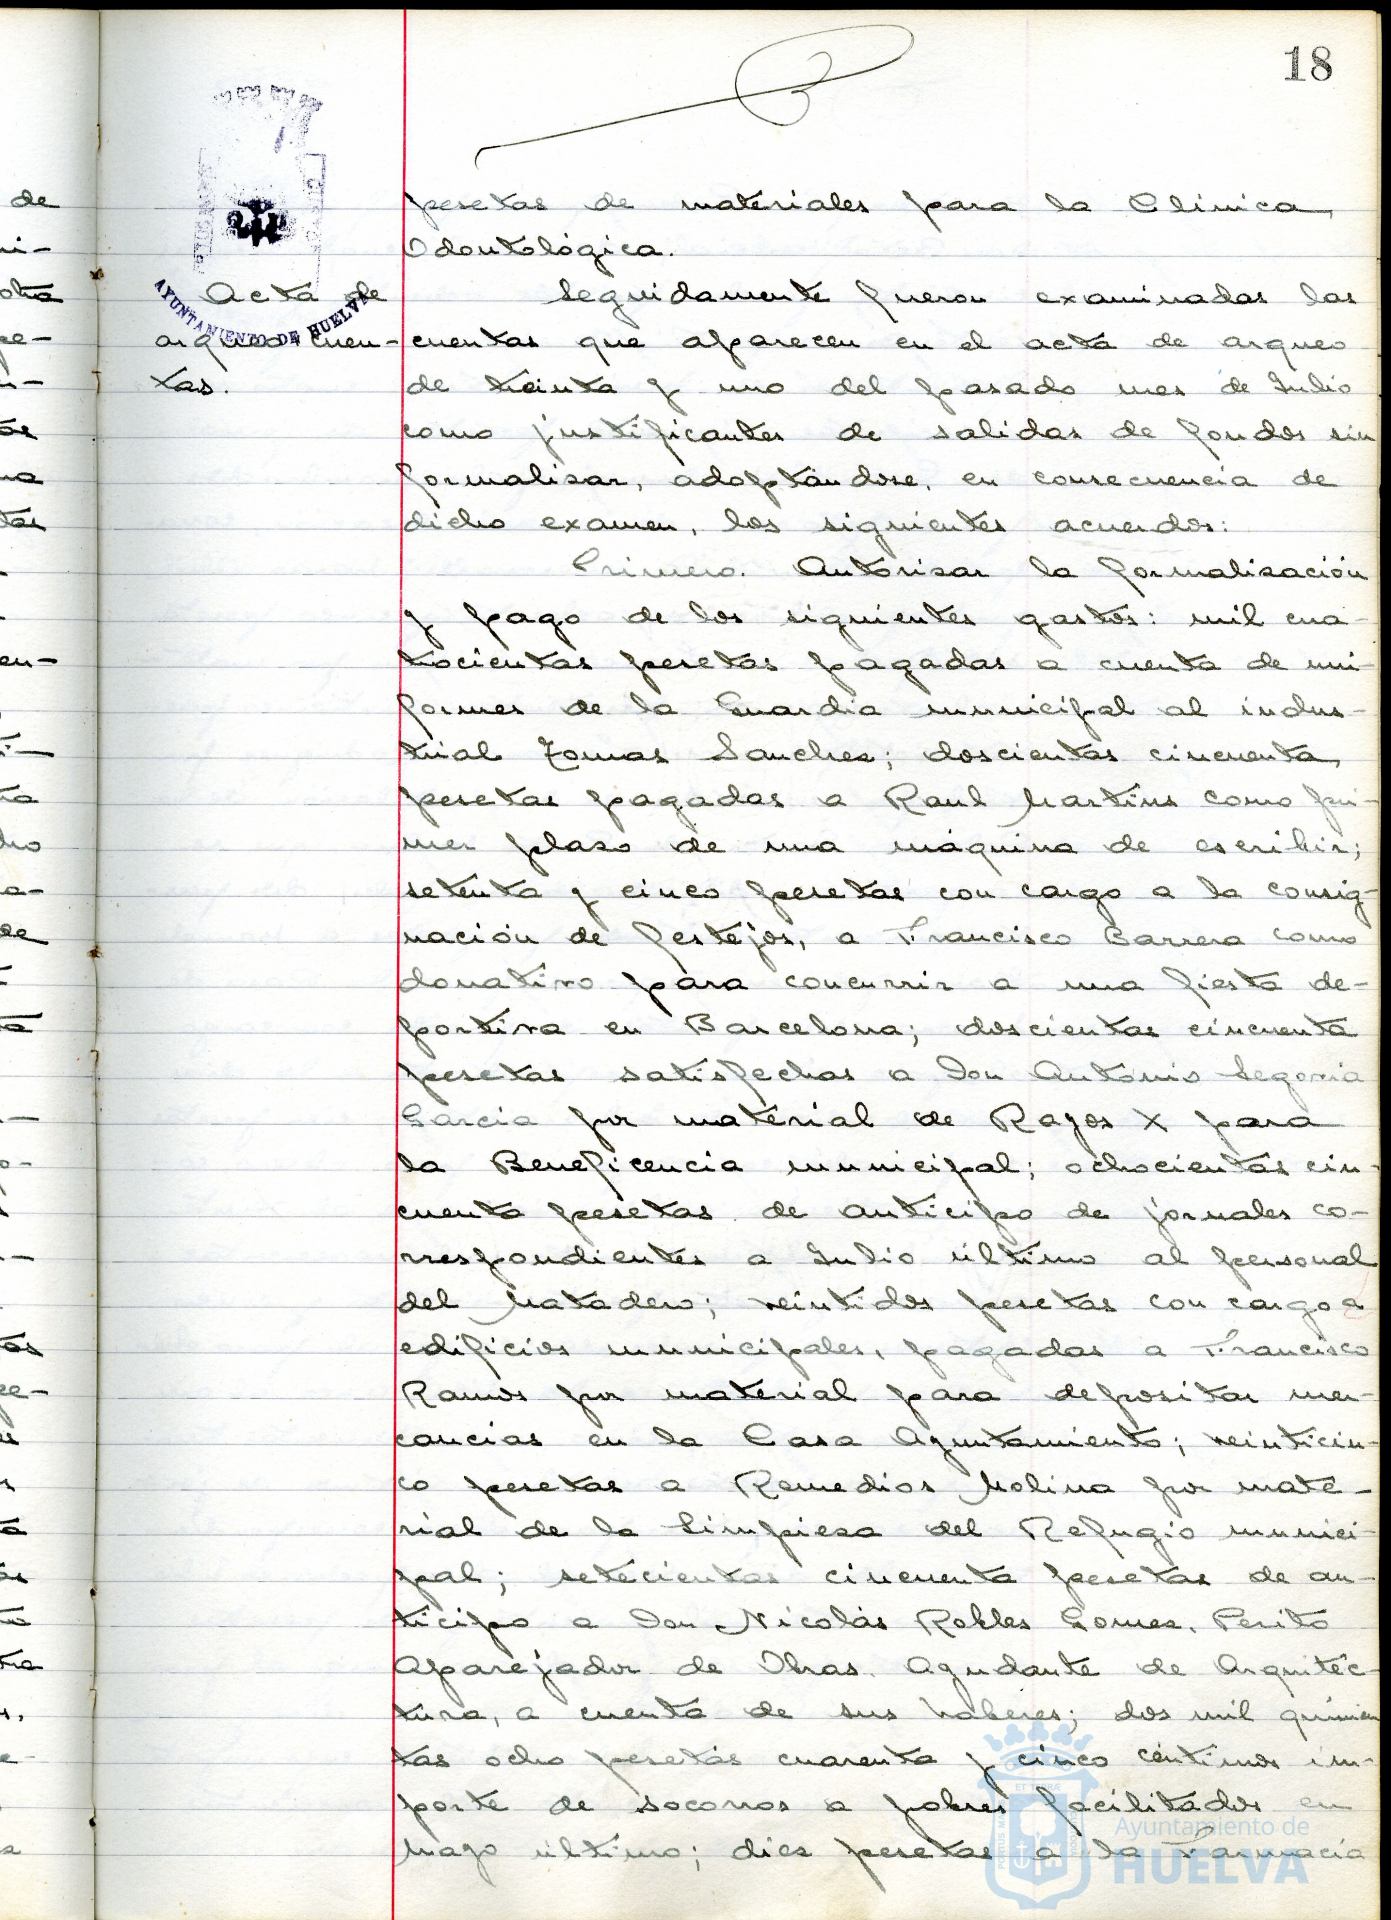 18
pesetas de materiales para la Clinica
Odontológica.
AYUNTAMIENTO DE HUELVA
Acta de
arqueo cuen-
tas.
Seguidamente fueron examinadas las
cuentas que aparecen en el acta de arqueo
de treinta y uno del pasado mes de Julio
como justificantes de salidas de fondos sin
formalisar, adoptándose, en consecuencia de
dicho examen, los siguientes acuerdos:
Primero. Autorisar la formalisación
y pago de los siguientes gastos: mil cua-
trocientas pesetas pagadas a cuenta de uni-
formes de la Guardia municipal al indus-
trial Tomas Sanches; doscientas cincuenta
pesetas pagadas a Raul Martins como pri-
mer plaso de una máquina de escribir;
setenta y cinco pesetas con cargo a la consig-
nación de festejos, a Francisco Barrera como
donativo para concurrir a una fiesta de-
portiva en Barcelona; doscientas cincuenta
pesetas satisfechas a Don Antonio Segovia
Garcia por material de Rayos X para
la Beneficencia municipal; ochocientas cin-
cuenta pesetas de anticipo de jornales co-
rrespondientes a Julio último al personal
del Matadero; veintidos pesetas con cargo a
edificios municipales, pagadas a Francisco
Ramos por material para depositar mer-
cancias en la Casa Ayuntamiento; veinticin-
co pesetas a Remedios Molina por mate-
rial de la Limpiesa del Refugio munici-
pal; setecientas cincuenta pesetas de an-
ticipo a Don Nicolás Robles Gomes, Perito
Aparejador de Obras, Ayudante de Arquitec-
tura, a cuenta de sus haberes; dos mil quinien
tas ocho pesetas cuarenta y cinco céntimos im-
porte de socorros a pobres facilitados en
Mayo último; dies pesetas a la Farmacia
Ayuntamiento de
HUELVA